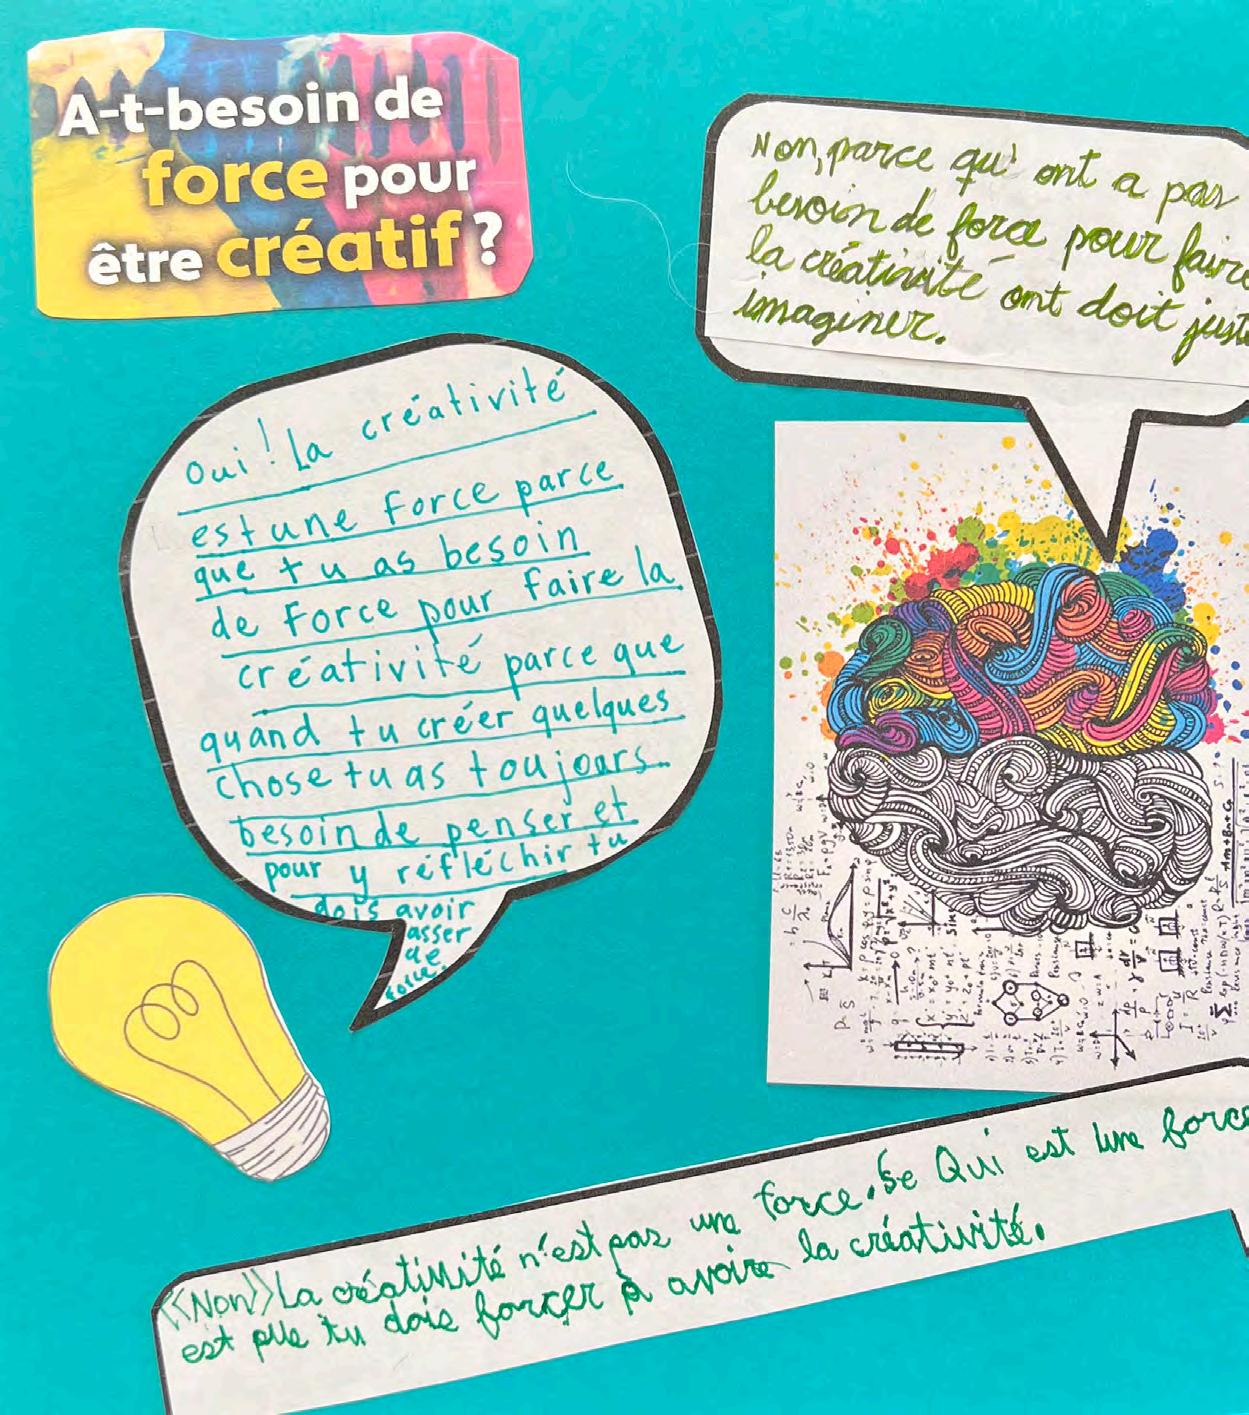 A-t-besoin de
force pour
être créatif ?
Non, parce qu' ont a pas
besoin de force pour faire
la créativité ont doit juste
imaginer.
Oui! La créativité
est une force parce
que tu as besoin
de force pour faire la
créativité parce que
quand tu créer quelques
chose tu as toujours
besoin de penser et
pour y réfléchir tu
dois avoir
asser
de
force.
<<Non>> La créativité n'est pas une force. Se Qui est une force
est que tu dois forcer à avoire la créativité.